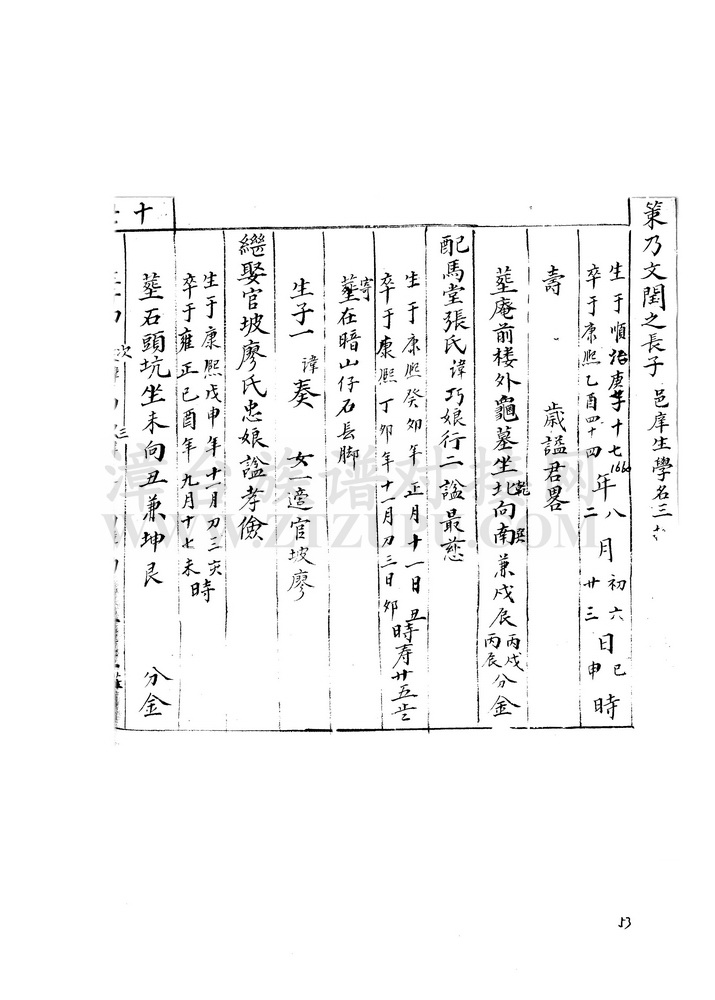 策乃文閏之長子 邑庠生學名三
生于順治庚子十七1660年八月初六日巳時
卒于康熙乙酉四十四年二月廿三日申時
壽 歲謚君畧
塟庵前楼外龜墓坐北乾向南巽兼戌辰丙戌丙辰分金
配馬堂張氏諱巧娘行二謚最慈
生于康熙癸卯年正月十一日丑時寿廿五
卒于康熙丁卯年十一月初三日卯
寄塟在暗山仔石長脚
生子一諱奏 女一適官坡廖
繼娶官坡廖氏忠娘謚孝儉
生于康熙戊申年十一月初三亥時
卒于雍正己酉年九月十七未
塟石頭坑坐未向丑兼坤艮 分金
十
漳台族谱对接网
WWW.ZTZUPU.COM
53